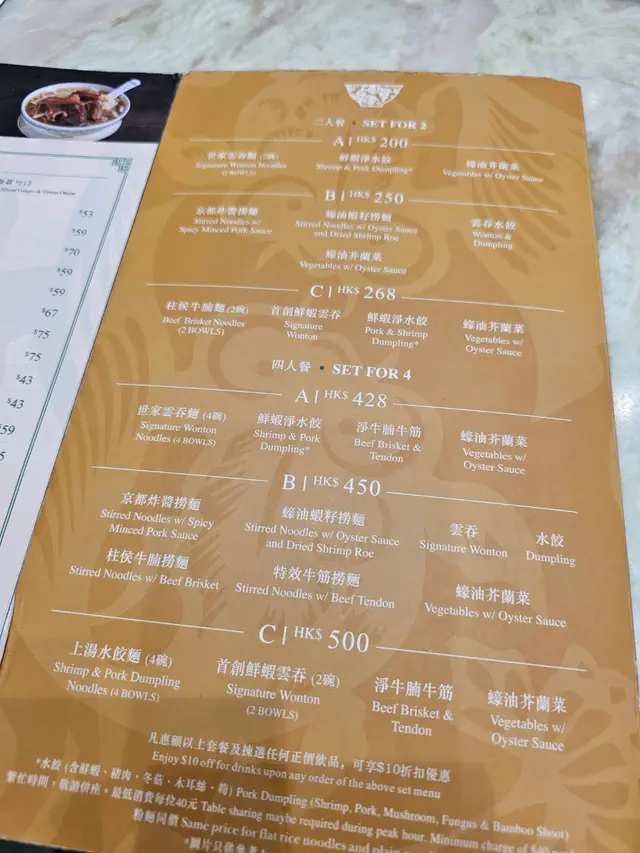 Sliced Ginger & Green Onion
$53
$59
$70
$59
$67
$75
$75
$43
$43
二人餐 • SET FOR 2
A | HK$ 200
世家雲吞麵 (2碗)
Signature Wonton Noodles
(2 BOWLS)
鮮蝦淨水餃
Shrimp & Pork Dumpling*
蠔油芥蘭菜
Vegetables w/ Oyster Sauce
B | HK$ 250
京都炸醬撈麵
Stirred Noodles w/
Spicy Minced Pork Sauce
蠔油蝦籽撈麵
Stirred Noodles w/ Oyster Sauce
and Dried Shrimp Roe
雲吞水餃
Wonton &
Dumpling
蠔油芥蘭菜
Vegetables w/ Oyster Sauce
C | HK$ 268
柱侯牛腩麵 (2碗)
Beef Brisket Noodles
(2 BOWLS)
首創鮮蝦雲吞
Signature
Wonton
鮮蝦淨水餃
Pork & Shrimp
Dumpling*
蠔油芥蘭菜
Vegetables w/
Oyster Sauce
四人餐 • SET FOR 4
A | HK$ 428
世家雲吞麵 (4碗)
Signature Wonton
Noodles (4 BOWLS)
鮮蝦淨水餃
Shrimp & Pork
Dumpling*
淨牛腩牛筋
Beef Brisket &
Tendon
蠔油芥蘭菜
Vegetables w/
Oyster Sauce
B | HK$ 450
京都炸醬撈麵
Stirred Noodles w/ Spicy
Minced Pork Sauce
蠔油蝦籽撈麵
Stirred Noodles w/ Oyster Sauce
and Dried Shrimp Roe
雲吞
Signature Wonton
水餃
Dumpling
柱侯牛腩撈麵
Stirred Noodles w/ Beef Brisket
特效牛筋撈麵
Stirred Noodles w/ Beef Tendon
蠔油芥蘭菜
Vegetables w/ Oyster Sauce
C | HK$ 500
上湯水餃麵 (4碗)
Shrimp & Pork Dumpling
Noodles (4 BOWLS)
首創鮮蝦雲吞 (2碗)
Signature Wonton
(2 BOWLS)
淨牛腩牛筋
Beef Brisket &
Tendon
蠔油芥蘭菜
Vegetables w/
Oyster Sauce
凡惠顧以上套餐及揀選任何正價飲品，可享$10折扣優惠
Enjoy $10 off for drinks upon any order of the above set menu
*水餃 (含鮮蝦、豬肉、冬菇、木耳絲、筍) Pork Dumpling (Shrimp, Pork, Mushroom, Fungus & Bamboo Shoot)
繁忙時間，敬請併座。最低消費每位40元 Table sharing maybe required during peak hour. Minimum charge of $40
粉麵同價 Same price for flat rice noodles and
*圖片只供參考